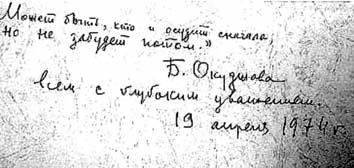 Может быть, кто и осудит сначала,
но не забудет потом."
Б. Окуджава
всем с глубоким уважением.
19 апреля 1974 г.